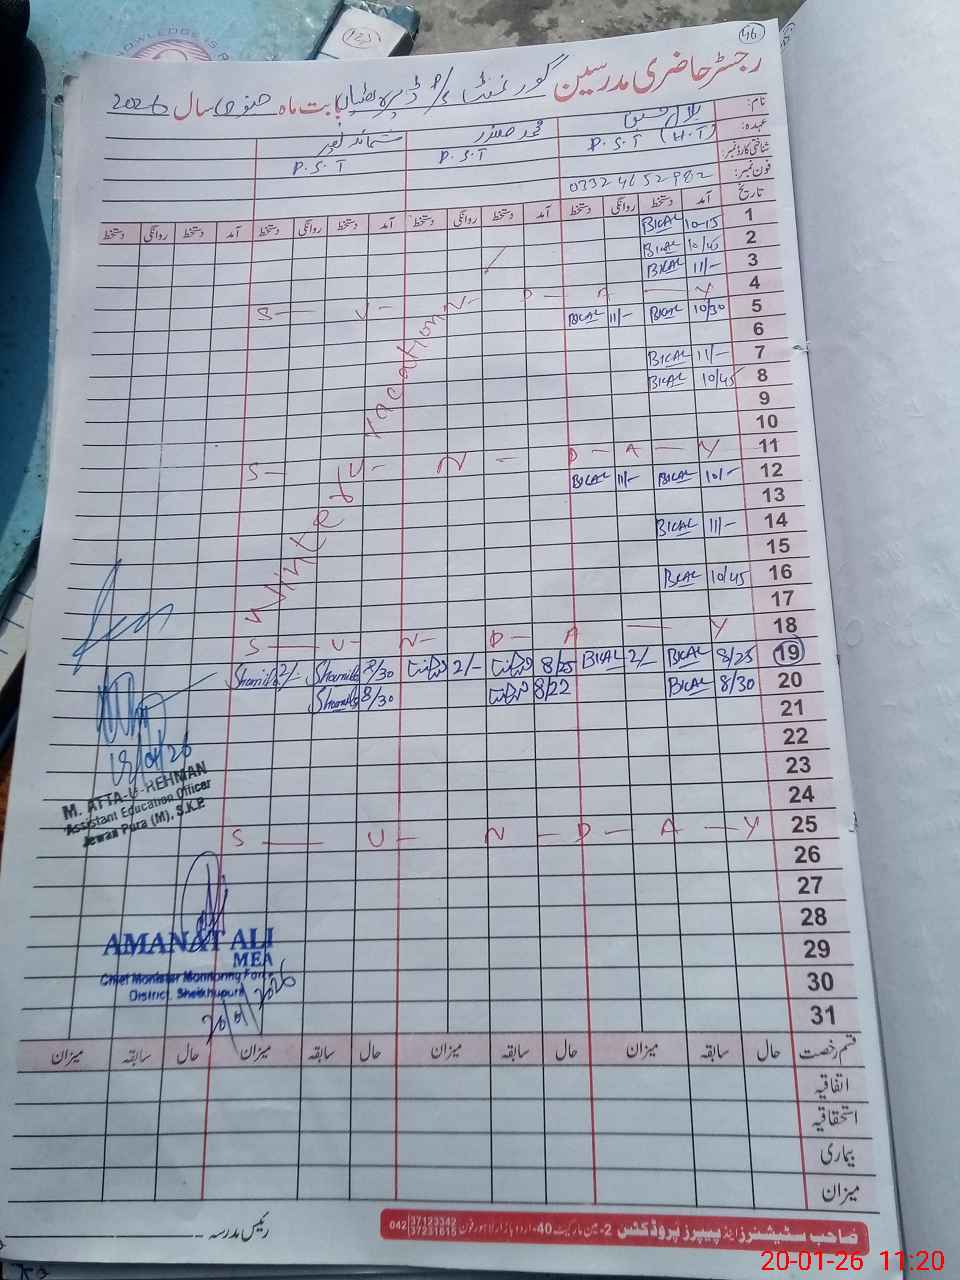 46
رجسٹر حاضری مدرسین گورنمنٹ بابت ماہ جنوری سال 2026
نام:
عہدہ: P.S.T (H.T) محمد صفدر P.S.T P.S.T
شناختی کارڈ نمبر:
فون نمبر: 0332 4652982
تاریخ آمد دستخط روانگی دستخط آمد دستخط روانگی دستخط آمد دستخط روانگی دستخط آمد دستخط روانگی دستخط
1 10-15 BILAL
2 10/45 BILAL
3 11/- BILAL
4 S U N D A Y
5 10/30 BILAL 11/- BILAL
6
7 11/- BILAL
8 10/45 BILAL
9
10
11 S U N D A Y
12 10/- BILAL 11/- BILAL
13
14 11/- BILAL
15
16 10/45 BILAL
17
18 S U N D A Y
19 8/25 BILAL 2/- BILAL 8/25 2/- 8/30 Shamila 2/- Shamila
20 8/30 BILAL 8/22 8/30 Shamila
21
22
23
24
25 S U N D A Y
26
27
28
29
30
31
Vacation
18/01/26
M. ATTA-U-REHMAN
Assistant Education Officer
Jewan Pura (M), S.K.P.
AMANAT ALI
MEA
Chief Minister Monitoring Force
District, Sheikhupura
20/01/2026
قسم رخصت حال سابقہ میزان حال سابقہ میزان حال سابقہ میزان حال سابقہ میزان
اتفاقیہ
استحقاقیہ
بیماری
میزان
صاحب سٹیشنرز اینڈ پیپرز پروڈکٹس 2-مین مارکیٹ 40-اردو بازار لاہور فون 042 37123342 37231615
رئیس مدرسہ
20-01-26 11:20